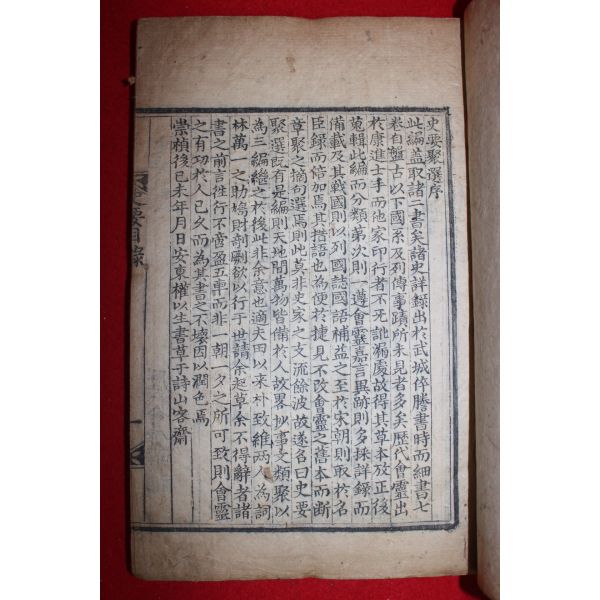 史要聚選序
此編盖取諸二書矣諸史詳錄出於武城倅謄書時而細書七
卷自盤古以下國系及列傳事蹟所未見者多矣歷代會靈出
於康進士手而他家印行者不死訛漏處故得其草本攷正後
蒐輯此編而分類第次則一遵會靈嘉言異跡則多採詳錄而
備載及其戰國則以列國誌國語補益之至於宋朝則取於名
臣錄而倍加焉其措語也為便於捷見不改會靈之舊本而断
章聚之摘句選焉則此莫非史家之支流餘波故遂名曰史要
聚選旣有是編則天地間萬物皆備於人故畧抄事文類聚以
為三編継之於後此非余意也適夫田以采朴致維两人為詞
林萬一之助鳩財剞劂欲以行于世請余起草余不得辭者諸
書之前言徃行不啻盈五車而非一朝一夕之所可致則會靈
之有功於人已久而為其書之不壞因以潤色焉
崇禎後己未年月日安東權以生書草于詩山客齋
史要目錄
一